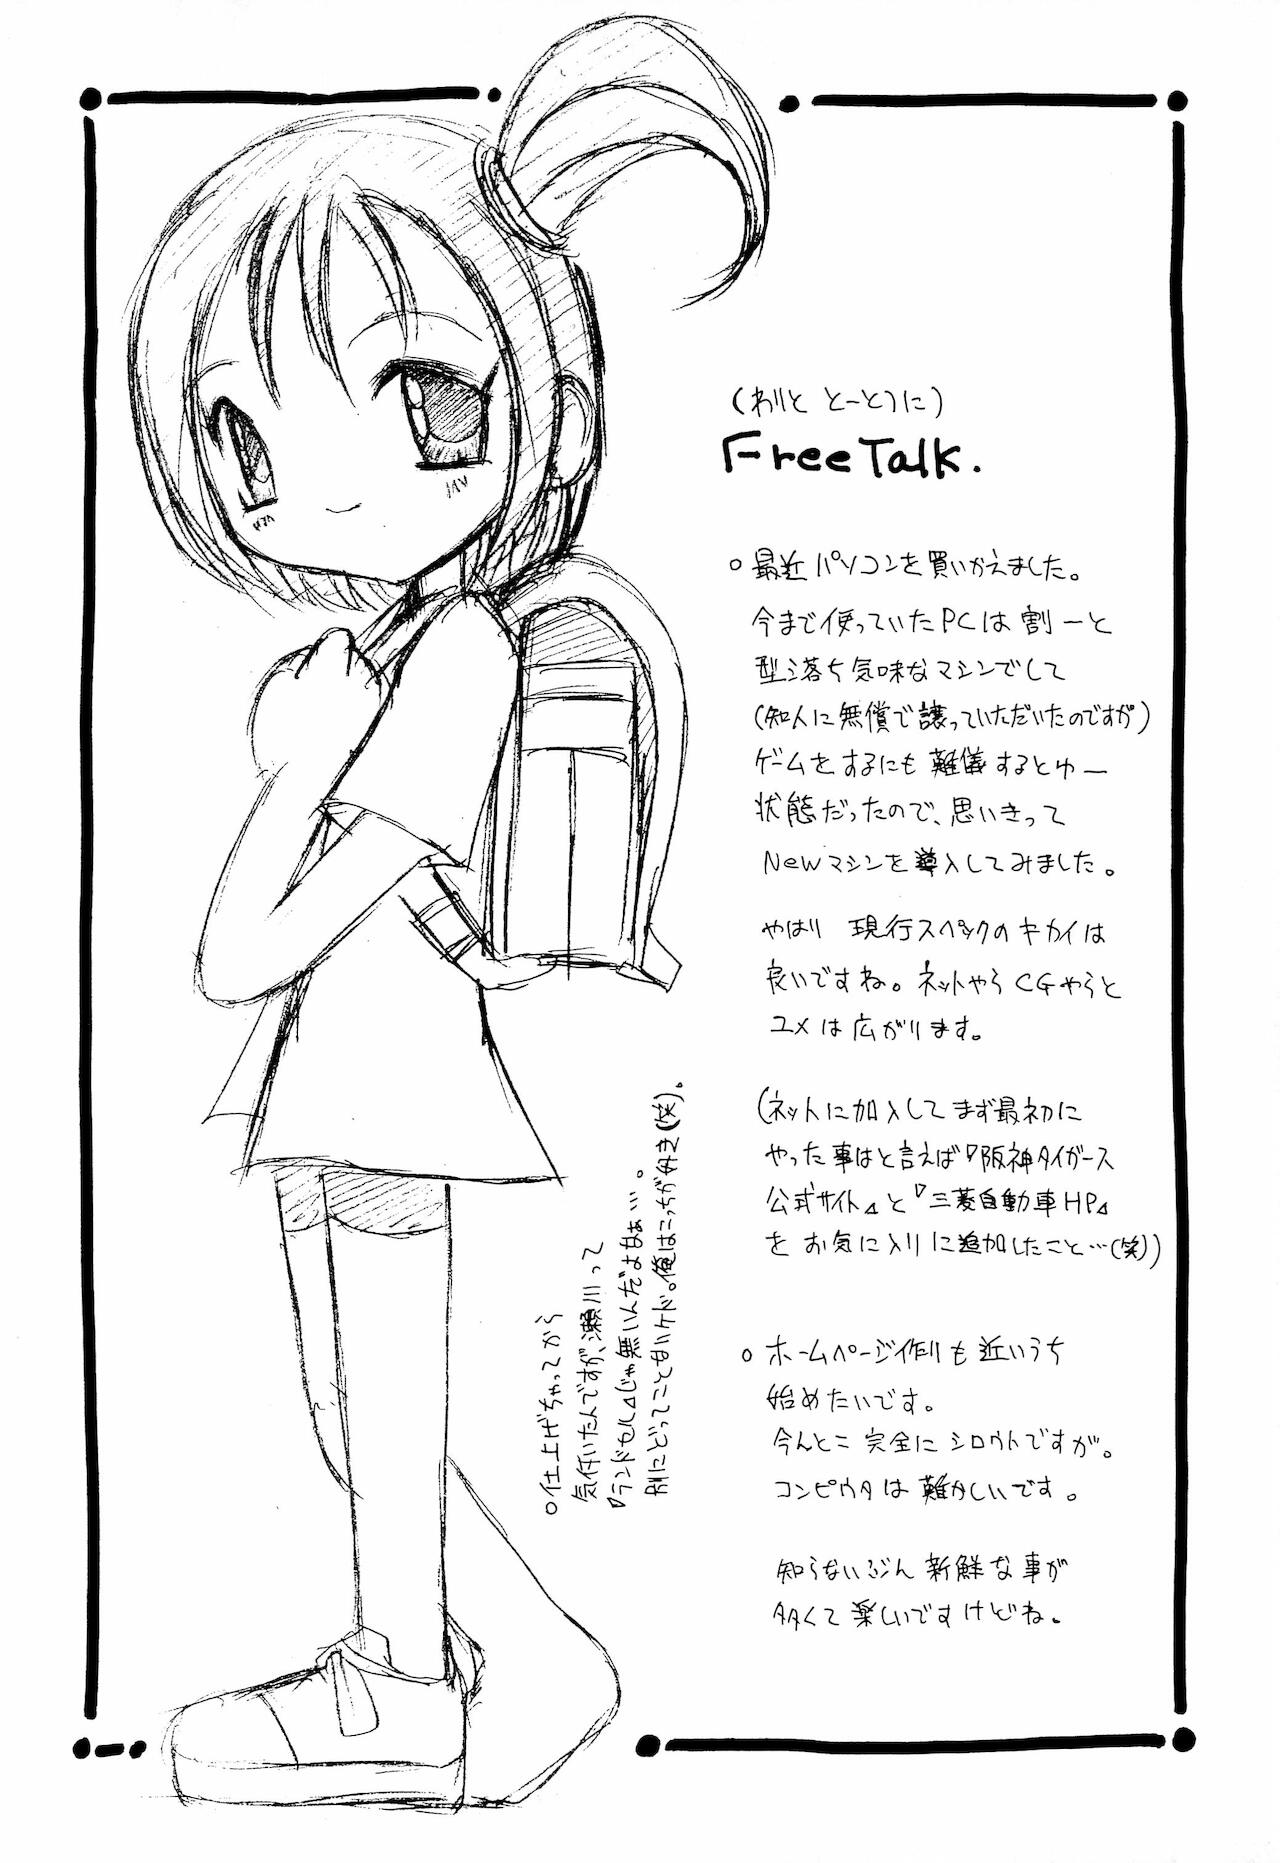 (わりと とーとつに)
Free Talk.
○最近パソコンを買いかえました。
今まで使っていたPCは割ーと
型落ち気味なマシンでして
(知人に無償で譲っていただいたのですが)
ゲームをするにも難儀するとゆー
状態だったので、思いきって
Newマシンを導入してみました。
やはり 現行スペックのキカイは
良いですね。ネットやらCGやらと
ユメは広がります。
(ネットに加入してまず最初に
やった事はと言えば『阪神タイガース
公式サイト』と『三菱自動車HP』
をお気に入りに追加したこと…(笑))
○ホームページ作りも近いうち
始めたいです。
今んとこ完全にシロウトですが。
コンピウタは難かしいです。
知らないぶん新鮮な事が
多くて楽しいですけどね。
○仕上げちゃってから
気付いたんですが、瀬川って
『ランドセル』じゃ無いんだよなぁ…。
別にどってことないケド。俺はこっちが好き(笑)。